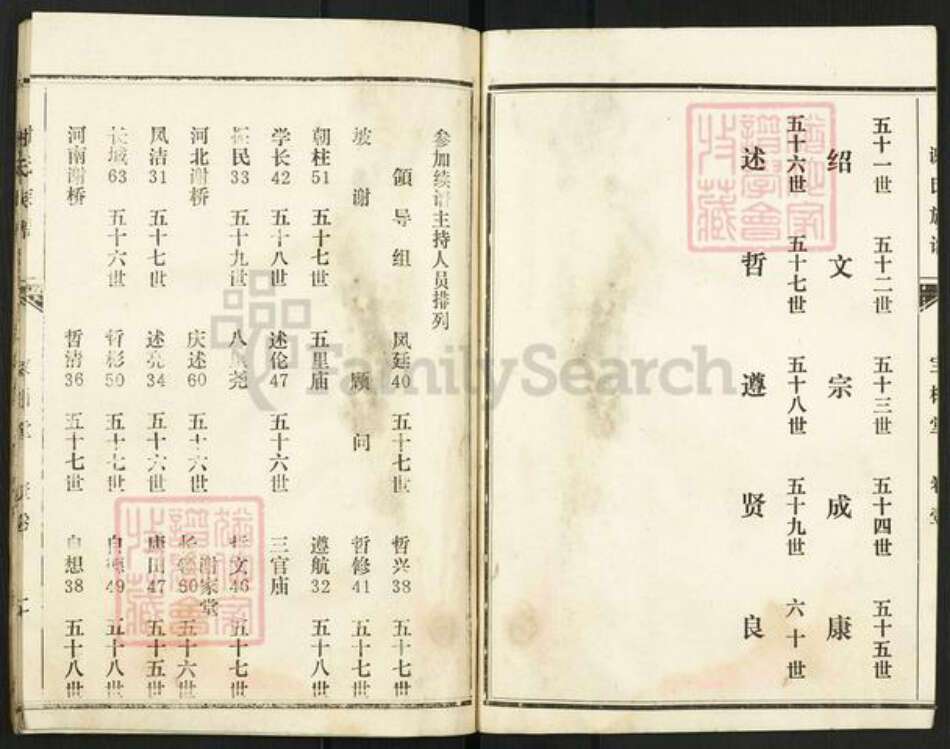 五十一世 五十二世 五十三世 五十四世 五十五世
绍 文 宗 成 康
五十六世 五十七世 五十八世 五十九世 六十世
述 哲 遵 贤 良
参加续谱主持人员排列
领导组 凤廷40 五十七世 哲兴38 五十七世
坡谢 顾问 哲修41 五十七世
朝柱51 五十七世 五里庙 遵航32 五十八世
学长42 五十八世 述伦47 五十六世 三官庙
民33 五十九世 八 尧 文46 五十七世
河北谢桥 庆述60 五十六世 谢家堂 60 五十六世
凤洁31 五十七世 述亮34 五十六世 康田47 五十五世
长城63 五十六世 哲杉50 五十七世 自 49 五十八世
河南谢桥 哲洁36 五十七世 自想38 五十八世
FamilySearch